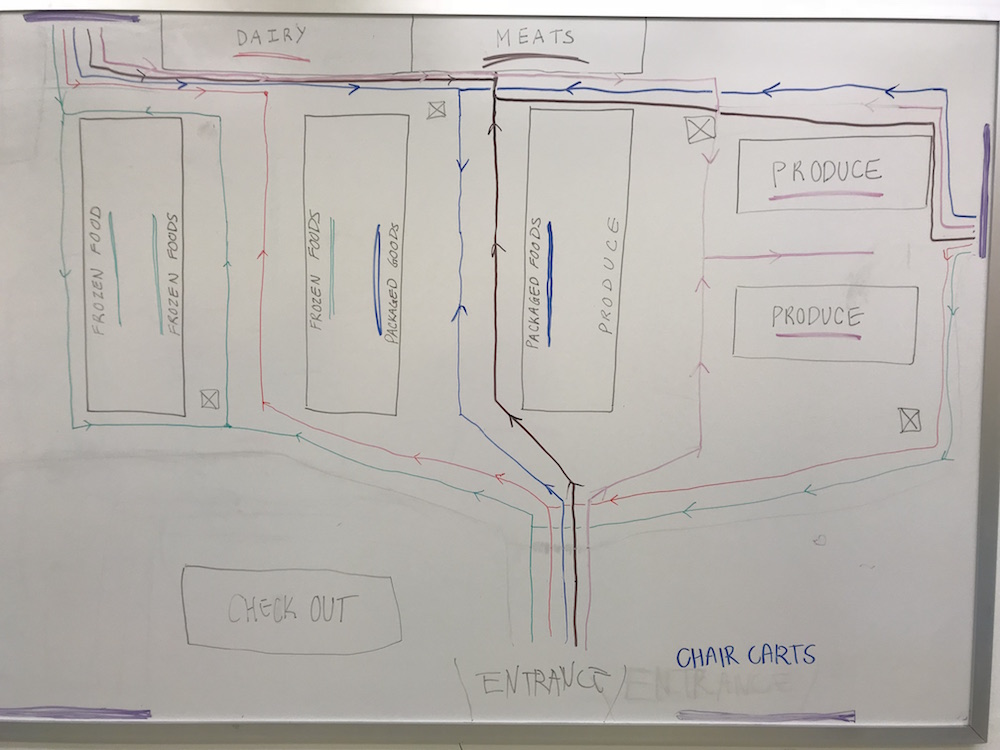 DAIRY
MEATS
PRODUCE
FROZEN FOOD
FROZEN FOODS
FROZEN FOODS
PACKAGED GOODS
PACKAGED FOODS
PRODUCE
PRODUCE
CHECK OUT
CHAIR CARTS
ENTRANCE
ENTRANCE